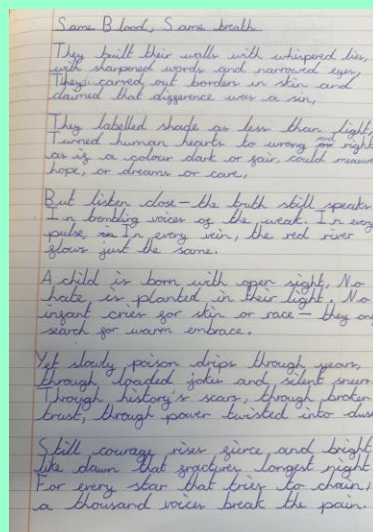 Same Blood, Same breath
They built their walls with whispered lies,
with sharpened words and narrowed eyes,
They carved out borders in skin and
claimed that difference was a sin,
They labelled shade as less than light,
Turned human hearts to wrong and right
as if a colour dark or fair, could measure
hope, or dreams or care,
But listen close – the truth still speaks
In voices of the weak. In every
pulse, In every vein, the red river
flows just the same.
A child is born with open sight, No
hate is planted in their light. No
infant cries for skin or race – they only
search for warm embrace.
Yet slowly poison drips through years,
through loaded jokes and silent sneers
Through history's scars, through broken
trust, through power twisted into dust
Still courage rises fierce and bright
like dawn that fractures longest night
For every star that tries to chain,
a thousand voices break the pain.